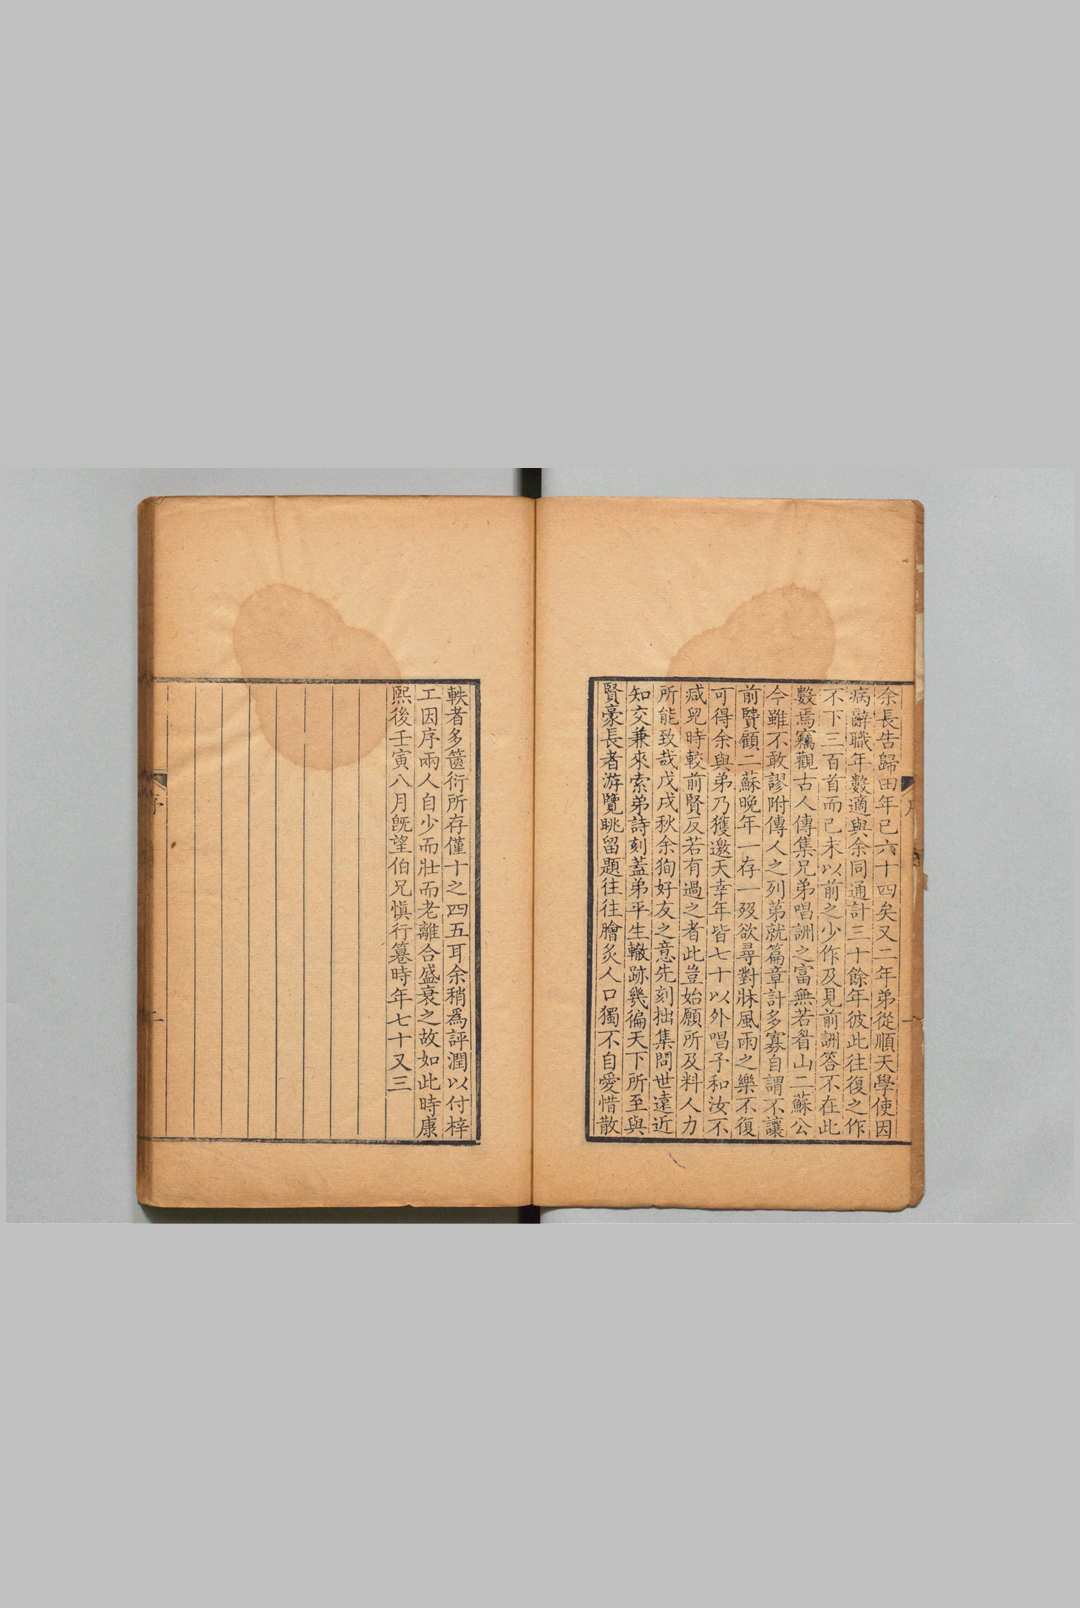 余長告歸田年已六十四矣又二年弟從順天學使因
病辭職年數適與余同通計三十餘年彼此往復之作
不下三百首而已未以前之少作及見前詶答不在此
數焉竊觀古人傳集兄弟唱詶之富無若眉山二蘇公
今雖不敢謬附傳人之列苐就篇章計多寡自謂不讓
前賢顧二蘇晚年一存一歿欲尋對牀風雨之樂不復
可得余與弟乃獲邀天幸年皆七十以外唱予和汝不
減兒時較前賢反若有過之者此豈始願所及料人力
所能致哉戊戌秋余狥好友之意先刻拙集問世遠近
知交兼來索弟詩刻蓋弟平生轍跡幾徧天下所至與
賢豪長者游覽眺留題往往膾炙人口獨不自愛惜散
軼者多篋衍所存僅十之四五耳余稍為評潤以付梓
工因序兩人自少而壯而老離合盛衰之故如此時康
熙後壬寅八月旣望伯兄愼行篹時年七十又三
序
一